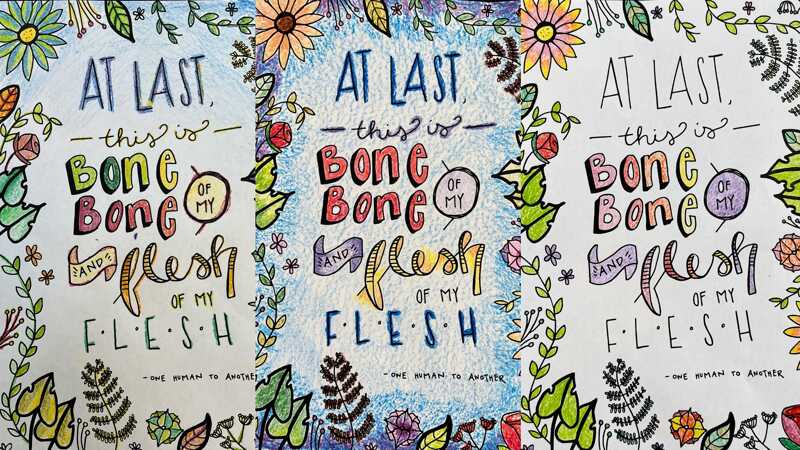 AT LAST,
this is
BONE
OF
MY
BONE
AND flesh
OF MY
F·L·E·S·H
- ONE HUMAN TO ANOTHER
AT LAST,
this is
BONE
OF
MY
BONE
AND flesh
OF MY
F·L·E·S·H
- ONE HUMAN TO ANOTHER
AT LAST,
this is
BONE
OF
MY
BONE
AND flesh
OF MY
F·L·E·S·H
- ONE HUMAN TO ANOTHER